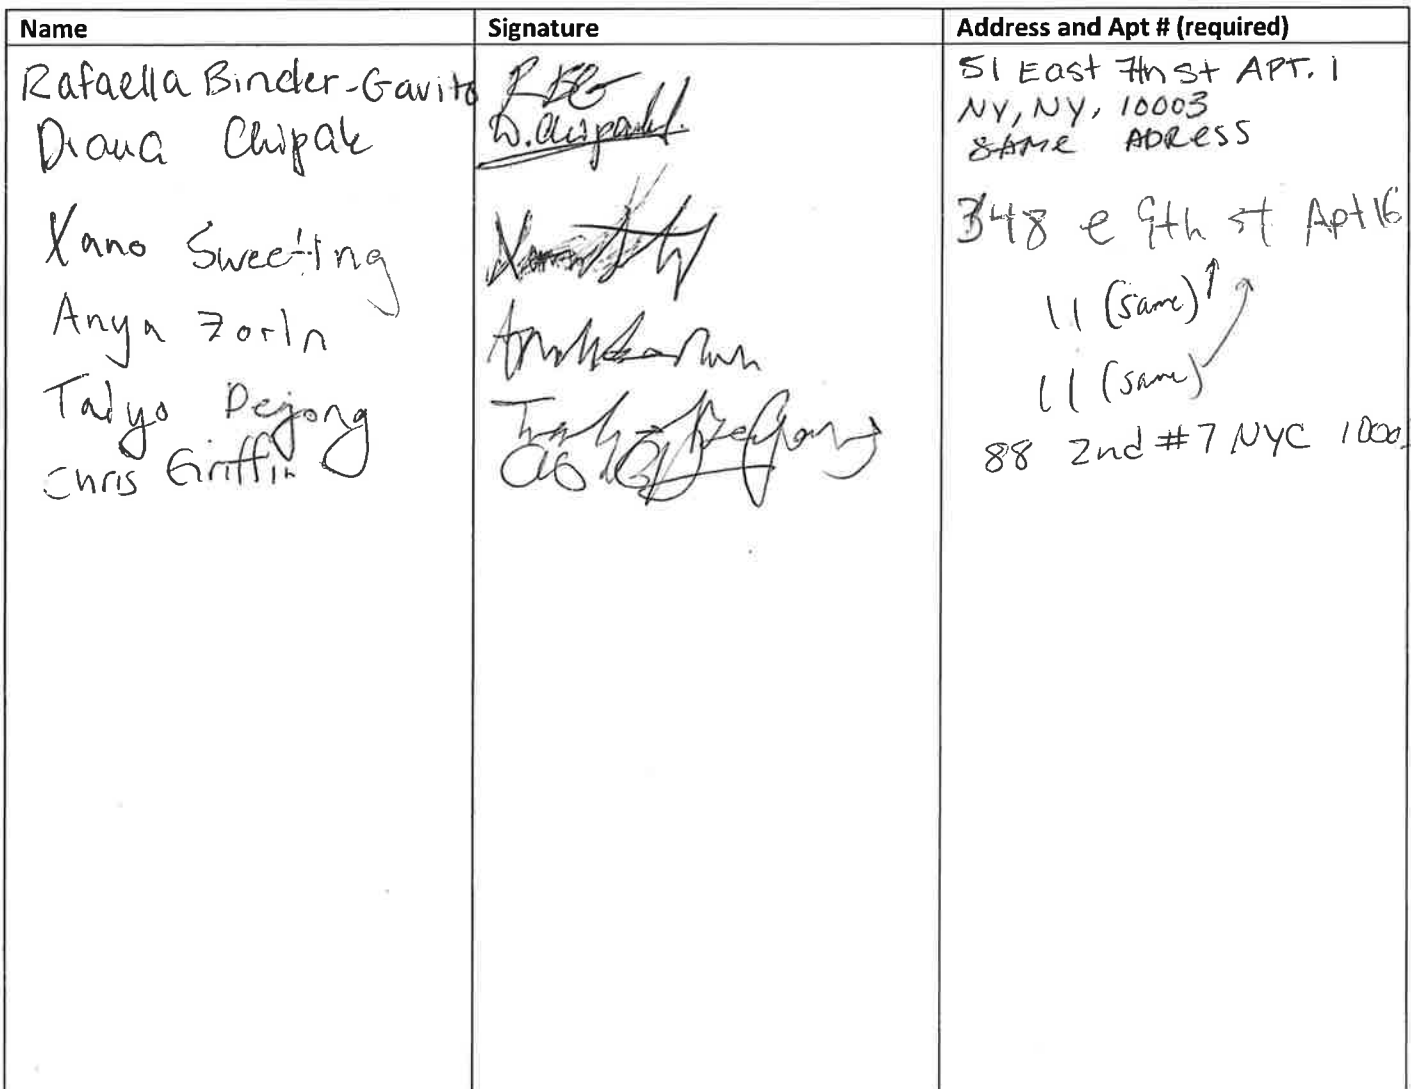 Name Signature Address and Apt # (required)
Rafaella Binder-Gavito RBG 51 East 7th St APT. 1
NY, NY, 10003
Diana Chipak D. Chipak SAME ADRESS
Xano Sweeting 348 e 9th st Apt 16
Anya Zorin 11 (same)
Talyo Dejong 11 (same)
Chris Griffin 88 2nd #7 NYC